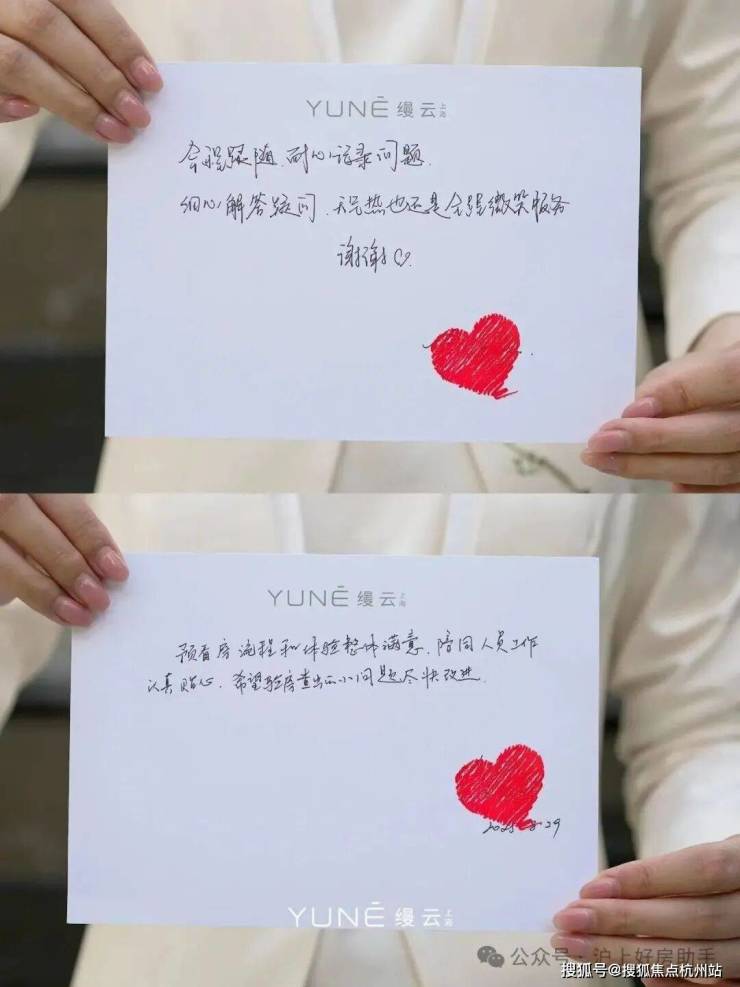 YUNĒ 缦云 上海
全程跟随、耐心记录问题.
细心解答疑问、天气热也还是全程微笑服务
谢谢♡.
YUNĒ 缦云 上海
预看房流程和体验整体满意、陪同人员工作
认真贴心、希望验房查出的小问题尽快改进.
2025-8-29
YUNĒ 缦云 上海
公众号·沪上好房助手
搜狐号@搜狐焦点杭州站